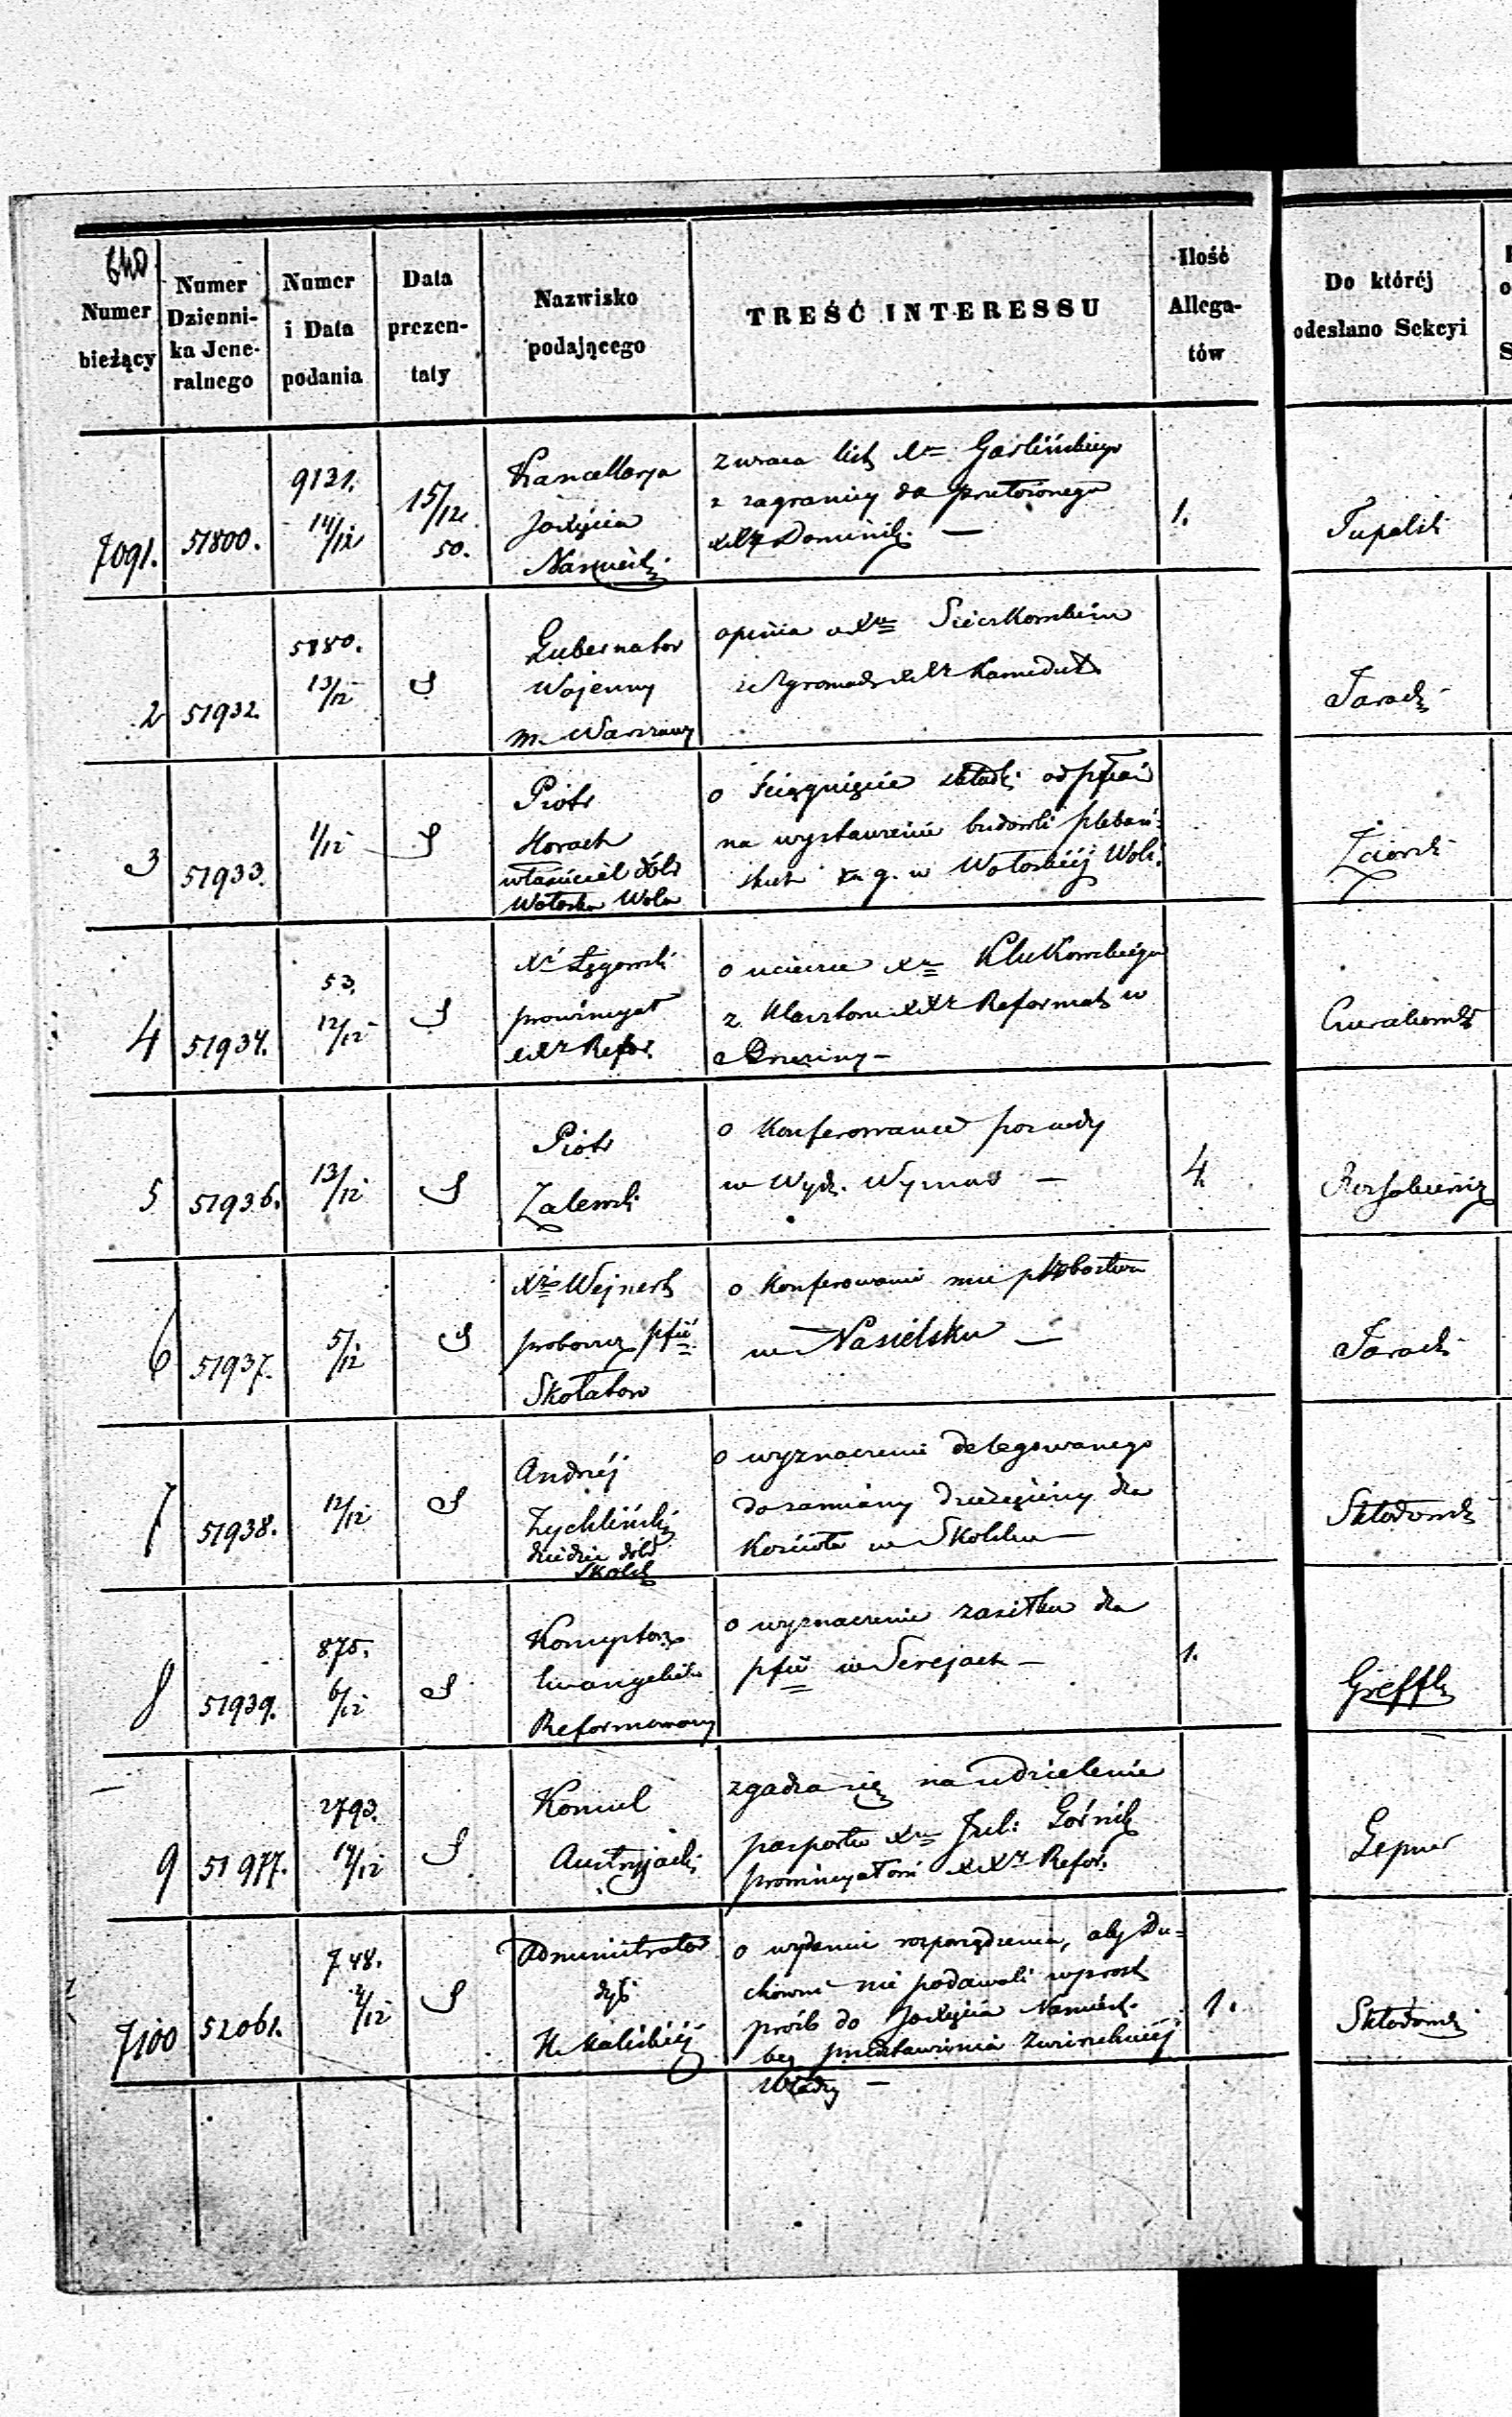 640
Numer bieżący
Numer Dzienni-
ka Jene-
ralnego
Numer i Data podania
Data prezen-
taty
Nazwisko podającego
TREŚĆ INTERESSU
Ilość Allega-
tów
Do któréj odesłano Sekcyi
7091.
51800.
9121.
14/12
15/12
50.
Kancellarya
Joxięcia
zwraca list Xa Gaslińskiego
z zagranicy do przełożonego
XXy Dominik. —
1.
Tupalski
2
51932.
5880.
13/12
S
Gubernator
Wojenny
m. Warszawy
opinia o Xu Sieczkowskim
ze Zgromadz XXy Kamedułów
3
51933.
1/12
S
Piotr
Horoch
właściciel dóbr
Wołoska Wola
o ściągnięcie składki od pfian
na wystawienie budowli plebań-
skich g. w Wołoskiéj Woli.
4
51934.
53.
12/12
S
Xr Łęgowski
prowincyał
XXr Refor.
o ucieczce Xa Klukowskiego
z Klasztoru XXr Reformat w
5
51936.
13/12
S
Piotr
Zalewski
o Konferowanie posady
w Wydz. Wyznań —
4.
6
51937.
5/12
S
Xr Wejnert
proboszcz pfii
Skołatow
o Konferowanie mu probostwa
w Nasielsku —
7
51938.
12/12
S
Andrzéj
Zychliński
dziedzic dóbr
Skolsk
o wyznaczenie delegowanego
do zamiany dziesięciny dla
Kościoła w Skolsku —
Skłodowski
8
51939.
875.
6/12
S
Konsystorz
Ewangelick
Reformowany
o wyznaczenie zasiłku dla
pfii w Serejach —
1.
Greffk
9
51977.
2793.
14/12
S
Konsul
Austryjacki
zgadza się na udzielenie
pasportu Xu Jul: Górnik
prowincyałowi XXr Refor.
Lepner
7100
52061.
748.
2/12
S
Administrator
dyi
K. Kaliskiéj
o wydanie rozporządzenia, aby Du-
chowni nie podawali wprost
próśb do Joxięcia Namiest.
bez przedstawienia Zwierzchniéj
Władzy —
1.
Skłodowski